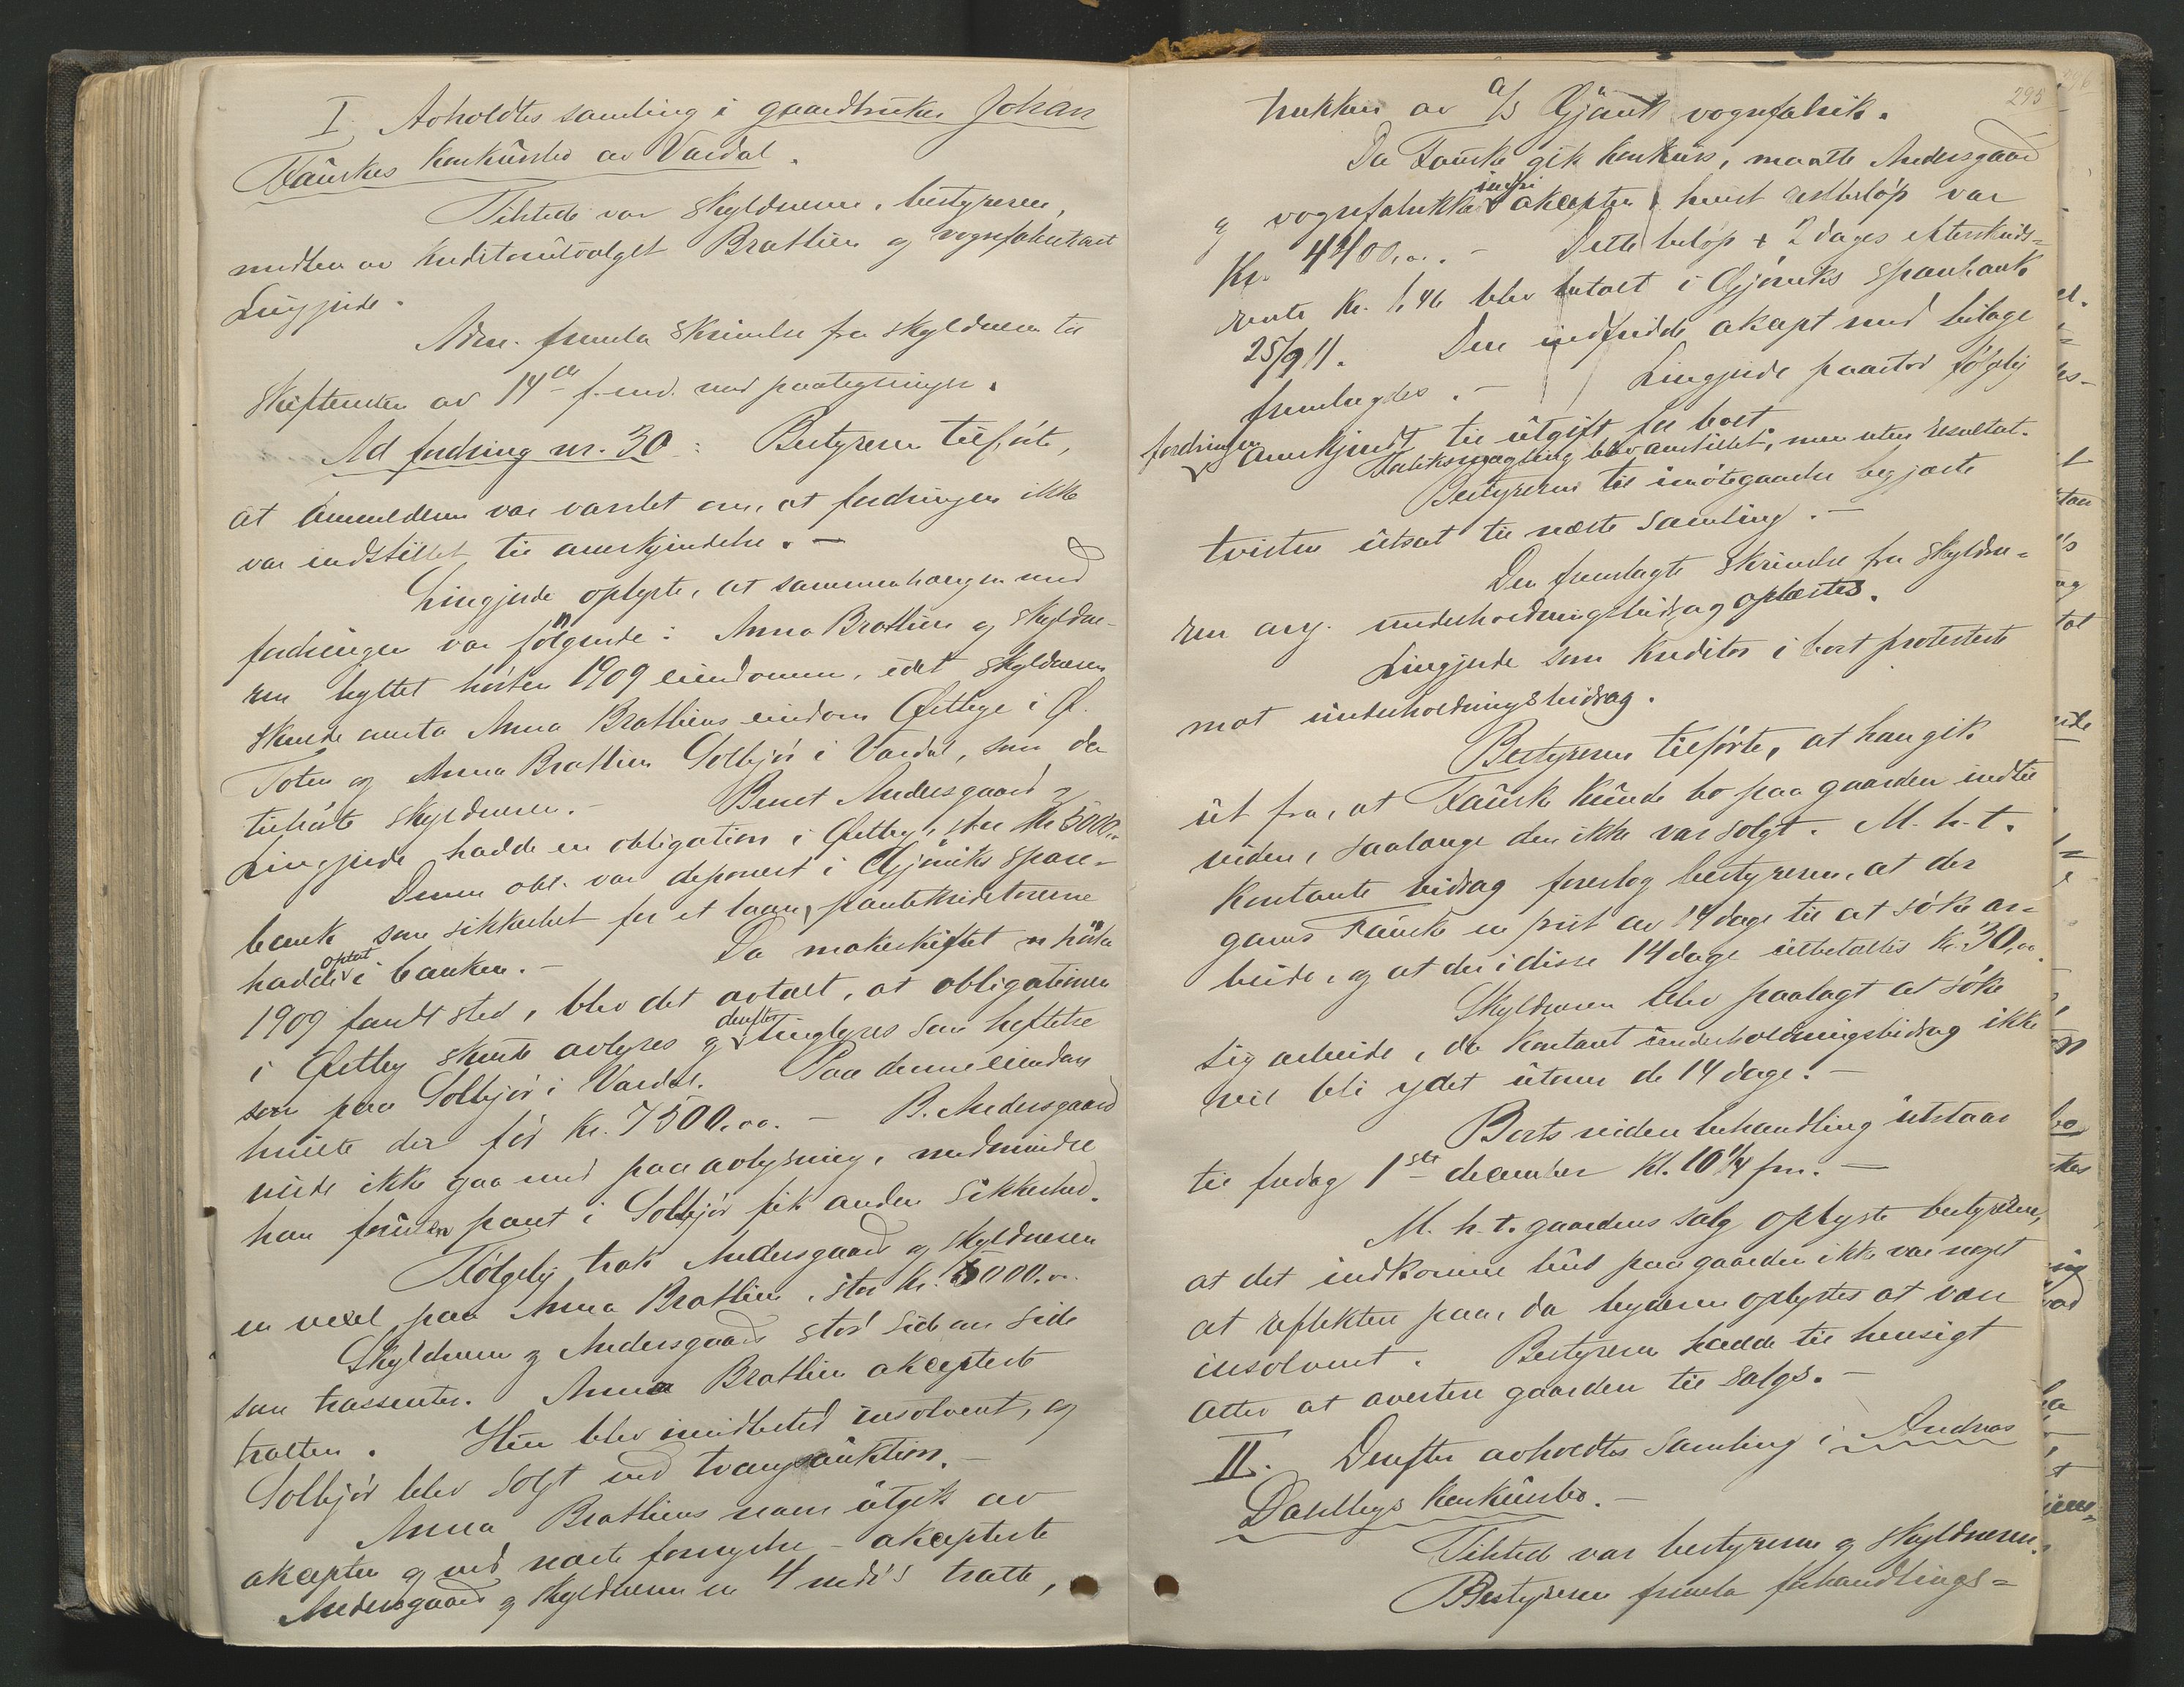 I Avholdtes samling i gaardbruker Johan
Faurkes konkursbo av Vardal.
Tilstede var skyldneren, bestyreren,
medlem av kreditorutvalget Brathlien og vognfabrikant
Lingjerde.
Adm. fremla skrivelse fra skyldneren til
skifteretten av 14de f. md. med paategninger.
Ad fordring nr. 30: Bestyreren tilførte,
at anmelderen var varslet om, at fordringen ikke
var indstillet til anerkjendelse. –
Lingjerde oplyste, at sammenhængen med
fordringen var følgende: Anna Brathlien og skyldne-
ren byttet høsten 1909 eiendomme, idet skyldneren
skulde overta Anna Brathliens eiendom Østbye i Ø.
Toten og Anna Brathlien Solbjør i Vardal, som da
tilhørte skyldneren. – Bernt Andersgaard og
Lingjerde hadde en obligation i Østby, stor kr 5000,-
Denne obl. var deponert i Gjøviks spare-
bank som sikkerhet for et laan, pantekreditorerne
hadde optat i banken. – Da makeskiftet høsten
1909 fandt sted, blev det avtalt, at obligationen
i Østby skulde avlyses og derefter tinglyses som heftelse
paa Solbjør i Vardal. Paa denne eiendom
hvilte der før kr. 7500.00. – B. Andersgaard
vilde ikke gaa med paa avlysning, medmindre
han foruten pant i Solbjør fik anden sikkerhed.
Følgelig trak Andersgaard og skyldneren
en vexel paa Anna Brathlien, stor kr. 5000.00
Skyldneren og Andersgaard stod side om side
som trassenter. Anna Brathlien akcepterte
tratten. Hun blev imidlertid insolvent, og
Solbjør blev solgt ved tvangsauktion. –
Anna Brathliens navn utgik av
akcepten og ved næste fornyelse – akcepterte
Andersgaard og skyldneren en 4 mdr's tratte,
295
trukken av A/S Gjøvik vognfabrik.
Da Faurke gik konkurs, maatte Andersgaard
og vognfabrikken indfri akcepten, hvis restbeløp var
Kr. 4400.00. – Dette beløp + 2 dages efterskuds-
rente kr. 1,46 blev betalt i Gjøviks sparebank
25/9 11. Den indfridde akcept med bilage
fremlagdes. – Lingjerde paastod følgelig
fordringen anerkjendt til utgift for boet.
Forliksmægling blev anstillet, men uten resultat.
Bestyreren til imøtegaaelse begjærte
tvisten utsat til næste samling. –
Den fremlagte skrivelse fra skyldne-
ren ang. underholdningsbidrag oplæstes.
Lingjerde som kreditor i boet protesterte
mot underholdningsbidrag.
Bestyreren tilførte, at han gik
ut fra, at Faurke kunde bo paa gaarden indtil
videre, saalænge den ikke var solgt. M. h. t.
kontante bidrag foreslog bestyreren, at der
gaves Faurke en frist av 14 dage til at søke ar-
beide, og at der i disse 14 dage utbetaltes kr. 30,00.
Skyldneren blev paalagt at søke
sig arbeide, da kontant underholdningsbidrag ikke
vil bli ydet utover de 14 dage. –
Boets videre behandling utstaar
til fredag 1ste december kl. 10 1/4 fm. –
M. h. t. gaardens salg oplyste bestyreren,
at det indkomne bud paa gaarden ikke var noget
at reflektere paa, da byderen oplystes at være
insolvent. Bestyreren hadde til hensigt
atter at avertere gaarden til salgs. –
II. Derefter avholdtes samling i Andreas
Dahlbys konkursbo. –
Tilstede var bestyreren og skyldneren.
Bestyreren fremla forhandlings-